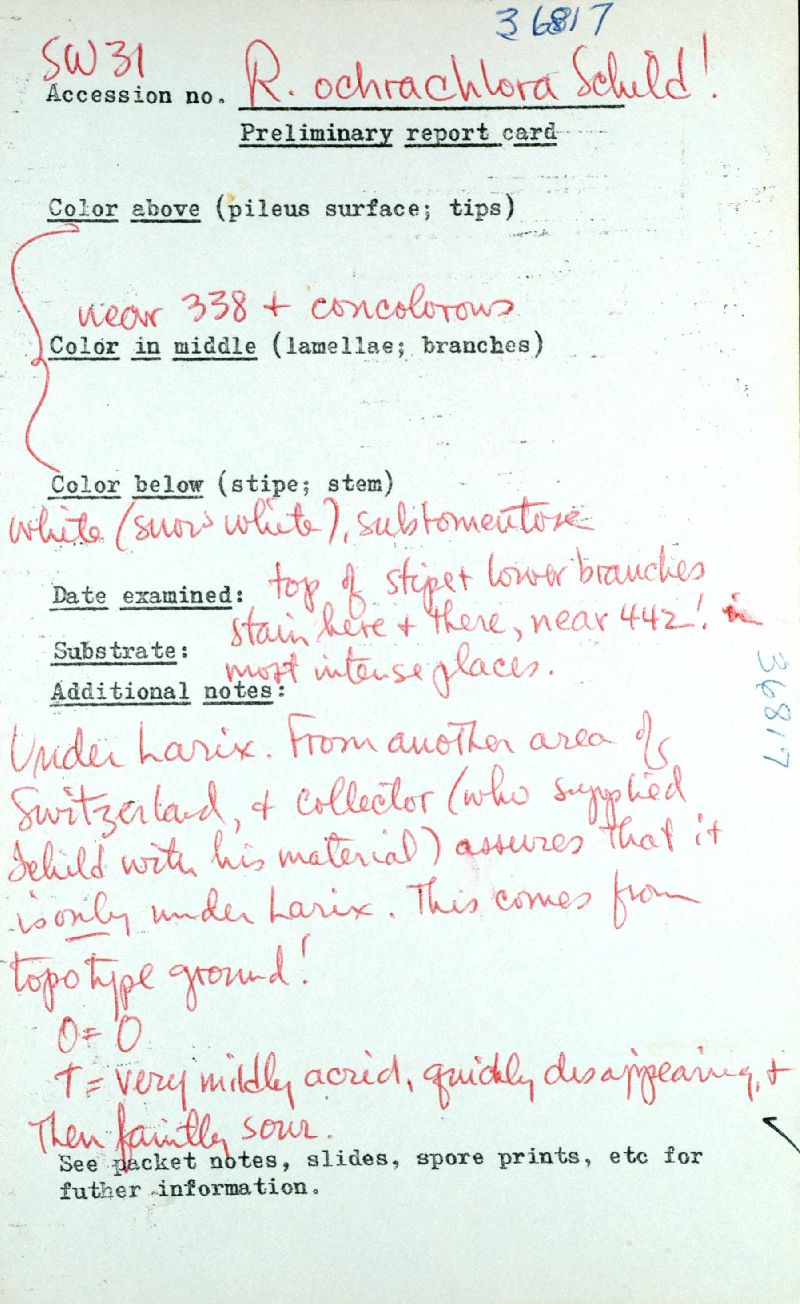 36817
SW 31
Accession no. R. ochrachlora Schild!
Preliminary report card
Color above (pileus surface; tips)
near 338 + concolorous
Color in middle (lamellae; branches)
Color below (stipe; stem)
white (snow white), subtomentose
Date examined: top of stipe + lower branches
stain here + there, near 442! in
Substrate:
most intense places.
Additional notes:
36817
Under Larix. From another area of
Switzerland, + collector (who supplied
Schild with his material) assures that it
is only under Larix. This comes from
topotype ground!
O = O
T = very mildly acrid, quickly disappearing, +
Then faintly sour.
See packet notes, slides, spore prints, etc for
futher information.